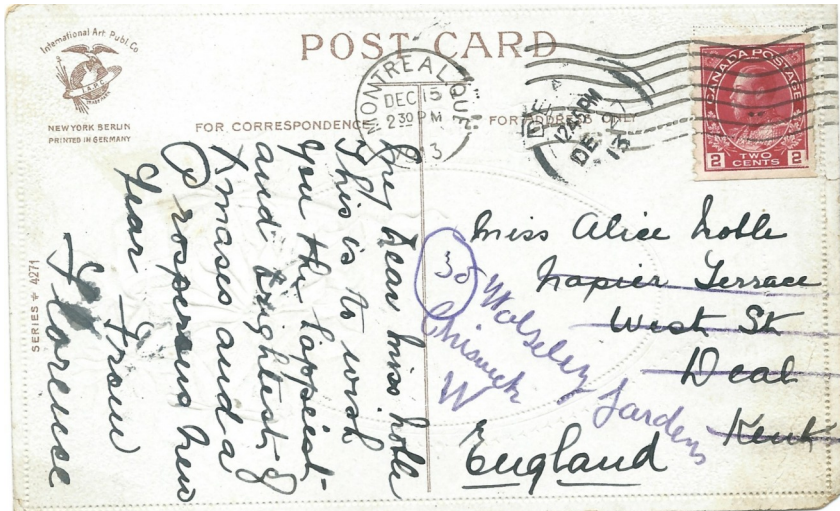 International Art Publ. Co
I.A.P.
NEW YORK BERLIN
PRINTED IN GERMANY
POST CARD
FOR CORRESPONDENCE
FOR ADDRESS ONLY
MONTREAL, QUE
DEC 15
2 30 PM
13
DE
12 45 PM
DE 7
13
CANADA POSTAGE
2 TWO CENTS 2
SERIES 4271
My Dear Miss Noble
This is to wish
you the happiest
and brightest of
Xmases and a
Prosperous New
Year From
Florence
Miss Alice Noble
Napier Terrace
West St
Deal
Kent
England
35 Wolseley Gardens
Chiswick
W